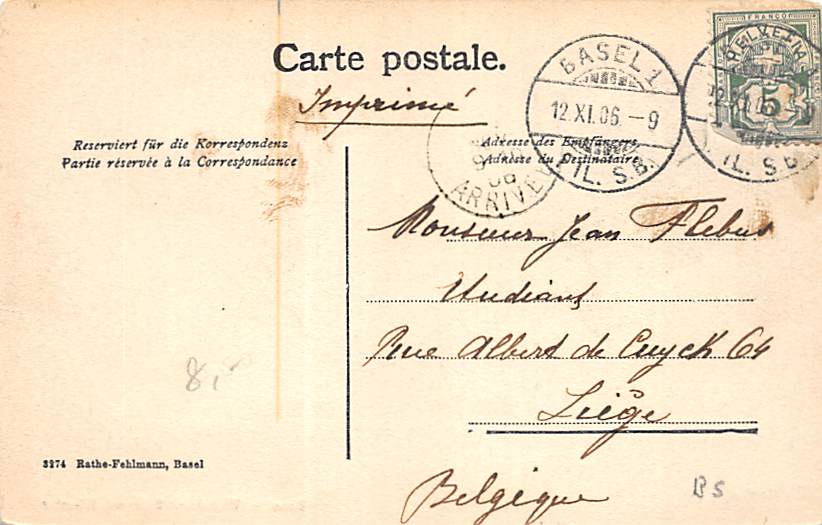 Carte postale.
Imprimé
Reserviert für die Korrespondenz
Partie réservée à la Correspondance
Adresse des Empfängers
Adresse du Destinataire
BASEL 1
12.XI.06.-9
(L. S.B.)
ARRIVÉE
FRANCO
HELVETIA
5
12.XI.06
(L. S.B.)
Monsieur Jean Flebus
Etudiant
Rue Albert de Cuyck 64
Liége
Belgique
8,-
3274 Rathe-Fehlmann, Basel
BS